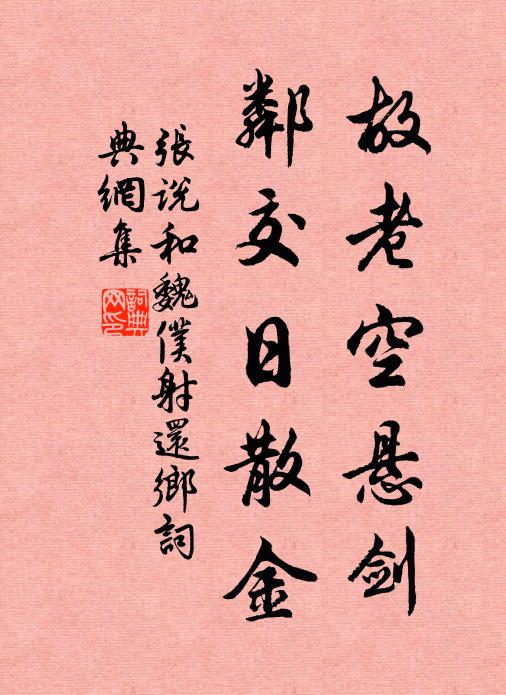 故老空悬剑
鄰交日散金
張说和魏僕射還鄉詞
典網集
詞典
网印